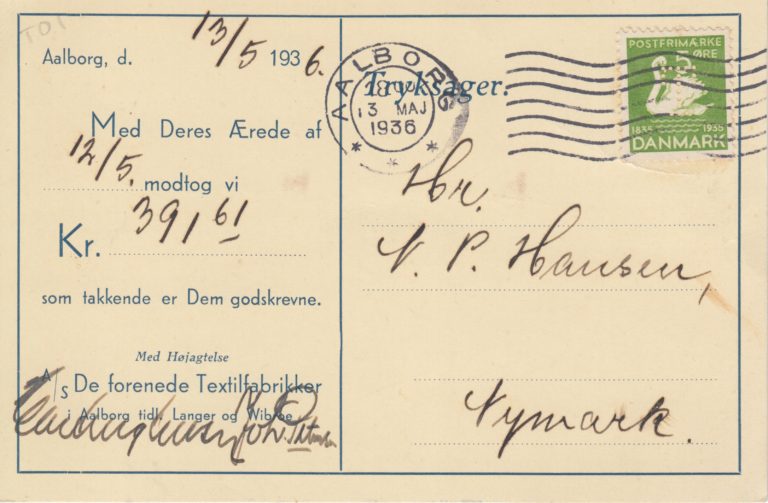 TOT
Aalborg, d. 13/5 1936.
Med Deres Ærede af
12/5. modtog vi
Kr. 391 61
som takkende er Dem godskrevne.
Med Højagtelse
A/S De forenede Textilfabrikker
i Aalborg tidl. Langer og Wibroe
Tryksager.
AALBORG
13 MAJ
1936
POSTFRIMÆRKE
5 ØRE
1835 1935
DANMARK
Hr.
N. P. Hansen,
Nymark.